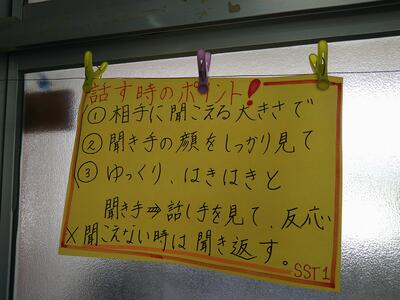 話す時のポイント!
①相手に聞こえる大きさで
②聞き手の顔をしっかり見て
③ゆっくり、はきはきと
聞き手⇒話し手を見て、反応
※聞こえない時は聞き返す。
SST1